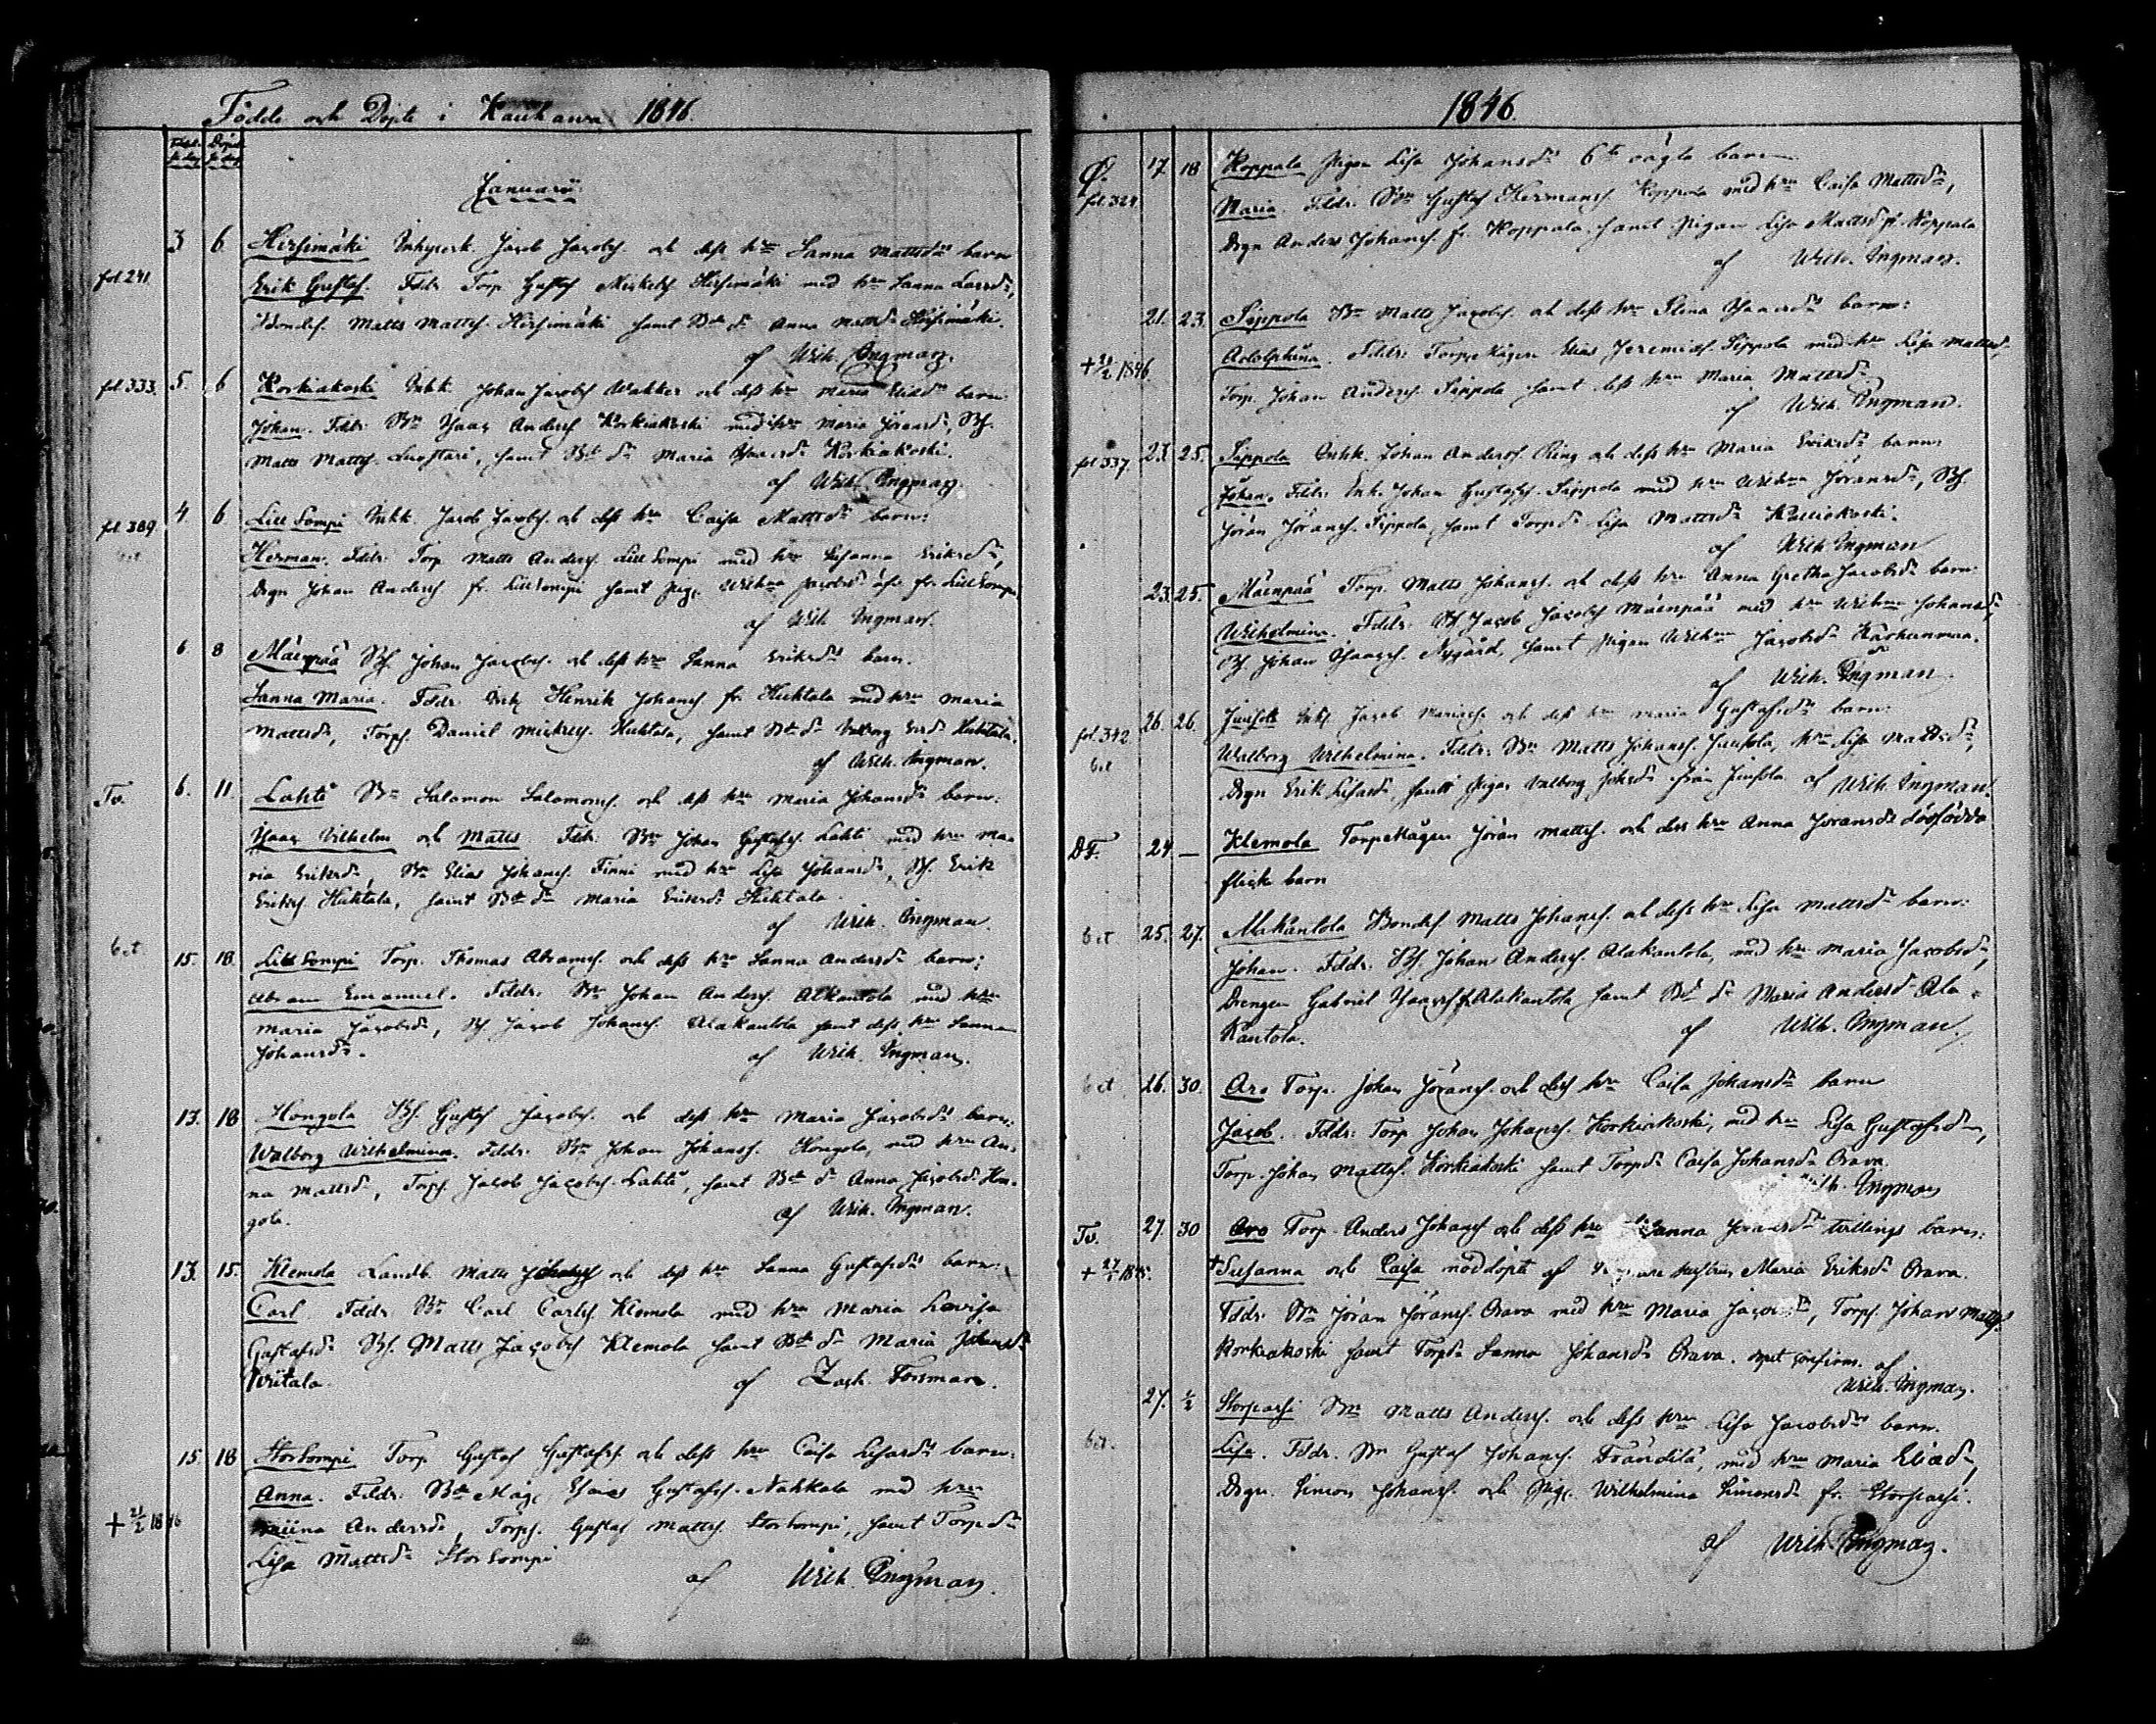 Födde och Döpte i Kauhava 1846.
Januarii
fol. 241. 3 6 Hirsimäki Inhysesk. Jacob Jacobss. och dess hru Sanna Mattsdrs barn
Erik Gustaf. Fddr. Torp. Gustaf Mickelss. Hirsimäki med hru Sanna
Bondes. Matts Mattss. Hirsimäki samt Bdedr. Anna Mattsdr Hirsimäki.
af Wilh. Ingman.
fol. 333. 5. 6 Korkiakoski Inhk. Johan Jacobss Wakker och dess hru Maria barn:
Johan. Fddr. Bn Isaac Anderss Korkiakoski med hru Maria Jöransdr, Bs.
Matts Mattss. Luostari, samt Bdedr Maria Isacsdr Korkiakoski.
af Wilh. Ingman.
fol. 389. 4. 6 Lill Sompi Inhk. Jacob Jacobss. och dess hru Caisa Mattsdrs barn:
Herman. Fddr. Torp. Matts Anderss. Lill Sompi med hru Susanna Eriksdr,
Drgn Johan Anderss fr. Lill Sompi samt pig. Wilhma Jacobsdr fr. Lill Sompi
af Wilh Ingman.
6 8 Mäenpää Bs. Johan Jacobss. och dess hru Sanna Eriksdrs barn.
Sanna Maria. Fddr. Inh. Henrik Johanss fr. Huhtala med hru Maria
Mattsdr, Torps. Daniel Mickelss. Huhtala, samt Bdedr Walborg Huhtala.
af Wilh. Ingman.
Tv. 6. 11. Lahti Bn Salomon Salomonss. och dess hru Maria Johansdrs barn:
Isaac Vilhelm och Matts. Fddr. Bn Johan Gustafss. Lahti med hru Ma-
ria Eriksdr, Bn Elias Johanss. Finni med hru Lisa Johansdr, Bs. Erik
Erikss. Huhtala, samt Bdedr Maria Eriksdr Huhtala.
af Wilh. Ingman.
bet. 15. 18. Lill Sompi Torp. Thomas Abramss. och dess hru Sanna Andersdrs barn:
Abram Emanuel. Fddr. Bn Johan Anderss. Alkantola med hru
Maria Jacobsdr, Bs Jacob Johanss. Alakantola samt dess hru Sanna
Johansdr.
af Wilh. Ingman.
13. 18 Hongola Bs. Gustaf Jacobss. och dess hru Maria Jacobsdrs barn:
Walborg Wilhelmina. Fddr. Bn Johan Johanss. Hongola, med hru An-
na Mattsdr, Torps. Jacob Jacobss Lahti, samt Bdedr Anna Jacobsdr Hon-
gola.
af Wilh. Ingman.
13. 15. Klemola Landb. Matts Johanss och dess hru Sanna Gustafsdrs barn:
Carl. Fddr. Bn Carl Carlss. Klemola med hru Maria Lovisa
Gustafsdr Bs. Matts Jacobss Klemola samt Bdedr Maria Johansdr
Writala.
af Zach. Forsman.
15. 18 Stor Sompi Torp. Gustaf Gustafss. och dess hru Caisa barn:
+ 21/2 1846 Anna. Fddr. Bdemåg Esaias Gustafss. Nahkala med hru
Andersdr, Torps. Gustaf Mattss. Storsompi, samt Torpdr
Lisa Mattsdr Stor Sompi
af Wilh. Ingman.
1846.
Ö. 17. 18 Koppala pigan Lisa Johansdrs 6te oägta barn
fol. 324. Maria. Fddr. Bn Gustaf Hermanss. Koppala med hru Caisa Mattsdr,
Drgn Anders Johanss. fr. Koppala samt pigan Lisa Mattsdr fr. Koppala
af Wilh. Ingman.
21. 23. Seppola Bn Matts Jacobss. och dess hru Stina Isaacsdrs barn:
+ 21/2 1846. Adolphina. Fddr. Torpmågen Elias Jeremiass Seppola med hru Lisa Mattsdr,
Torp. Johan Anderss. Seppola samt dess hru Maria Mattsdr
af Wilh. Ingman.
fol 337. 23. 25. Seppola Inhk. Johan Anderss. Ring och dess hru Maria Eriksdrs barn:
Johan. Fddr. Enk. Johan Gustafss. Seppola med hru Wilhma Jöransdr, Bs.
Jöran Jöranss. Seppola, samt Torpdr Lisa Mattsdr Kalliokoski.
af Wilh Ingman
23. 25. Mäenpää Torp. Matts Johanss. och dess hru Anna Gretha Jacobsdrs barn:
Wilhelmina. Fddr. Bs Jacob Jacobss Mäenpää med hru Wilhma Johansdr,
Bs. Johan Isaacss. Nygård, samt pigan Wilhma Jacobsdr Karhunmaa.
af Wilh. Ingman
fol. 342. bet 26. 26. Jacob och dess hru Maria Gustafsdrs barn:
Walborg Wilhelmina. Fddr. Bn Matts Johanss. hru Lisa Mattsdr,
Drgn Erik samt pigan Walborg från af Wilh. Ingman.
DF. 24 — Klemola Torpmågen Jöran Mattss. och dess hru Anna Jöransdrs dödfödda
flicke barn
bet 25. 27. Alakantola Bondes. Matts Johanss. och dess hru Lisa Mattsdrs barn:
Johan. Fddr. Bs Johan Anderss. Alakantola, med hru Maria Jacobsdr,
Drengen Gabriel Isaacss fr. Alakantola samt Bdedr Maria Andersdr Ala-
kantola.
af Wilh. Ingman.
bet 26. 30. Aro Torp. Johan Jöranss. och dess hru Caisa Johansdrs barn
Jacob. Fddr. Torp Johan Johanss. Korkiakoski, med hru Lisa Gustafsdr,
Torp. Johan Mattss. Korkiakoski samt Torpdr Caisa Johansdr Orava.
Wilh. Ingman
Tv. 27. 30 Aro Torp. Anders Johanss och dess hru Sanna Jöransdrs tvillings barn:
+ 27/1 1846. +Susanna och Caisa nöddöpte af hustru Maria Eriksdr Orava.
Fddr. Bn Jöran Jöranss. Orava med hru Maria Jacobsdr, Torps. Johan Mattss.
Korkiakoski samt Torpdr Sanna Johansdr Orava. dopet confirm. af
Wilh. Ingman.
bet. 27. 1/2 Storpassi Bn Matts Anderss. och dess hru Lisa Jacobsdrs barn.
Lisa. Fddr. Bn Gustaf Johanss. Frändilä, med hru Maria Eliædr,
Drgn. Simon Johanss. och pig. Wilhelmina Simonsdr fr. Storpassi.
af Wilh Ingman.